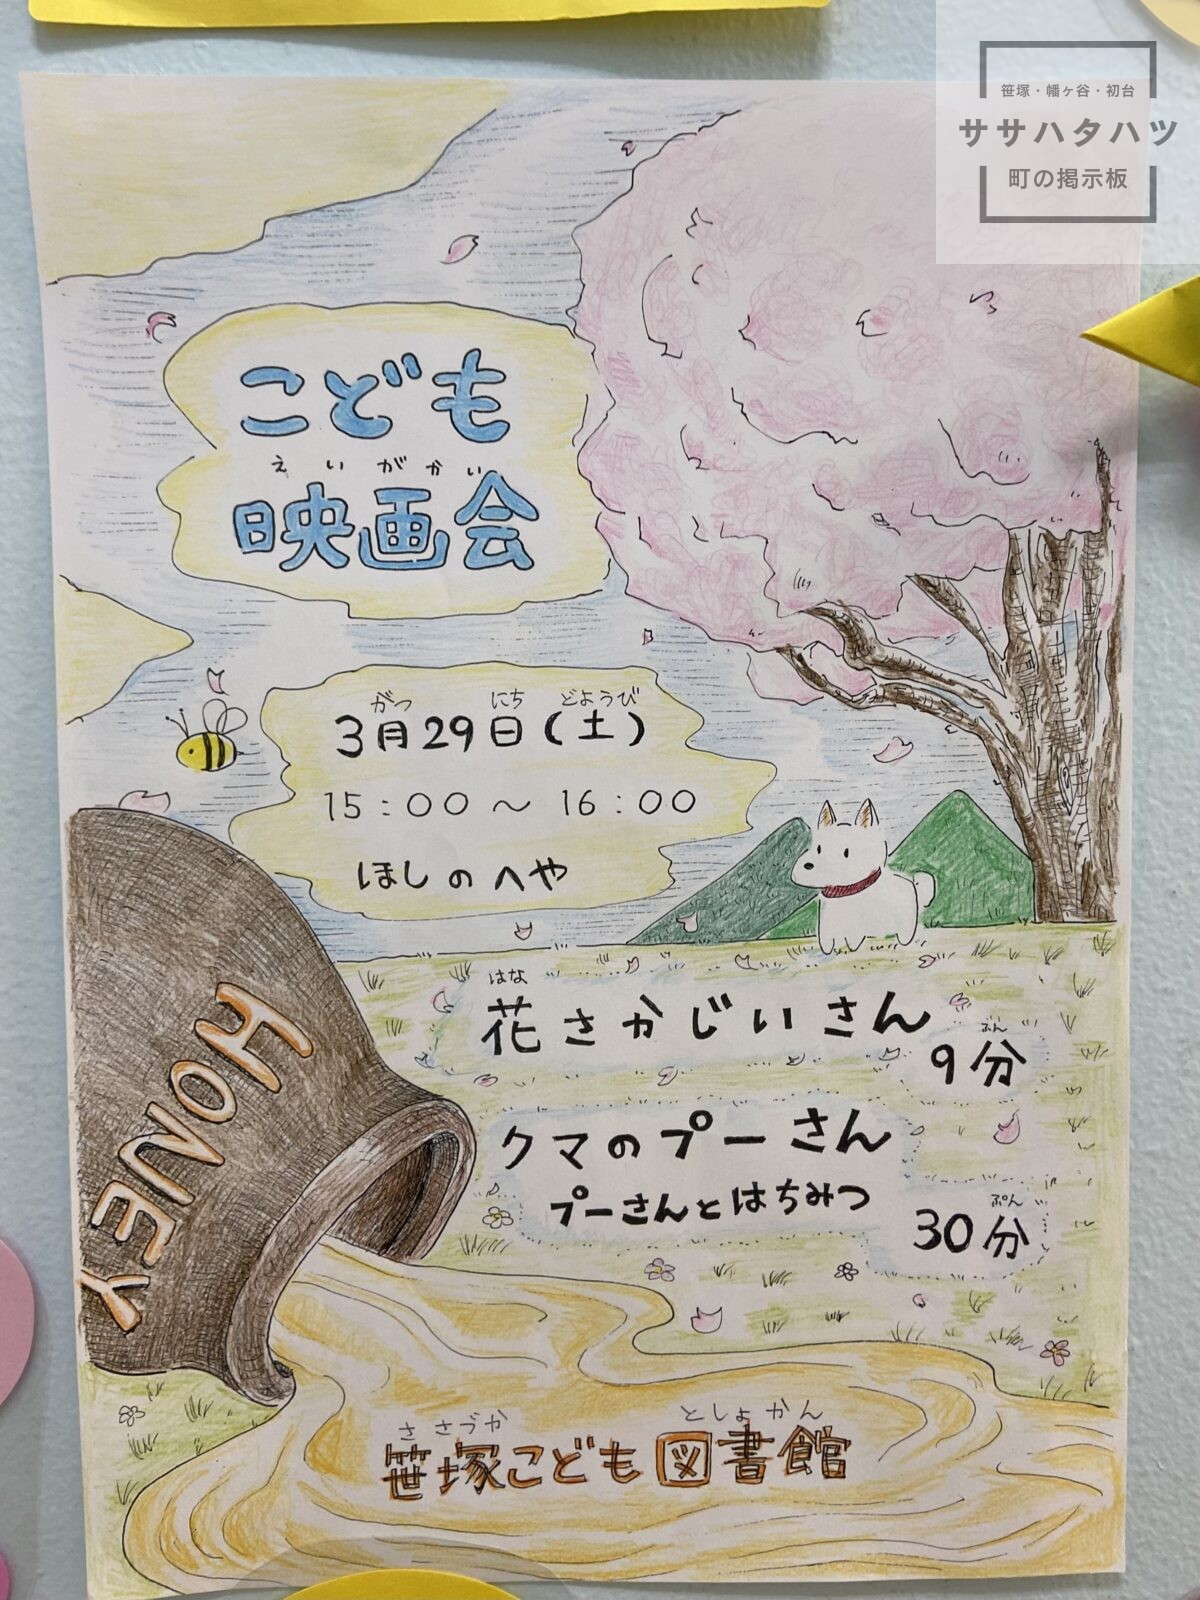 笹塚・幡ヶ谷・初台
ササハタハツ
町の掲示板
こども
えいがかい
映画会
がつ にち どようび
3月29日(土)
15:00～16:00
ほしのへや
はな
花さかじいさん
ぷん
9分
クマのプーさん
プーさんとはちみつ
ぷん
30分
HONEY
ささづか としょかん
笹塚こども図書館